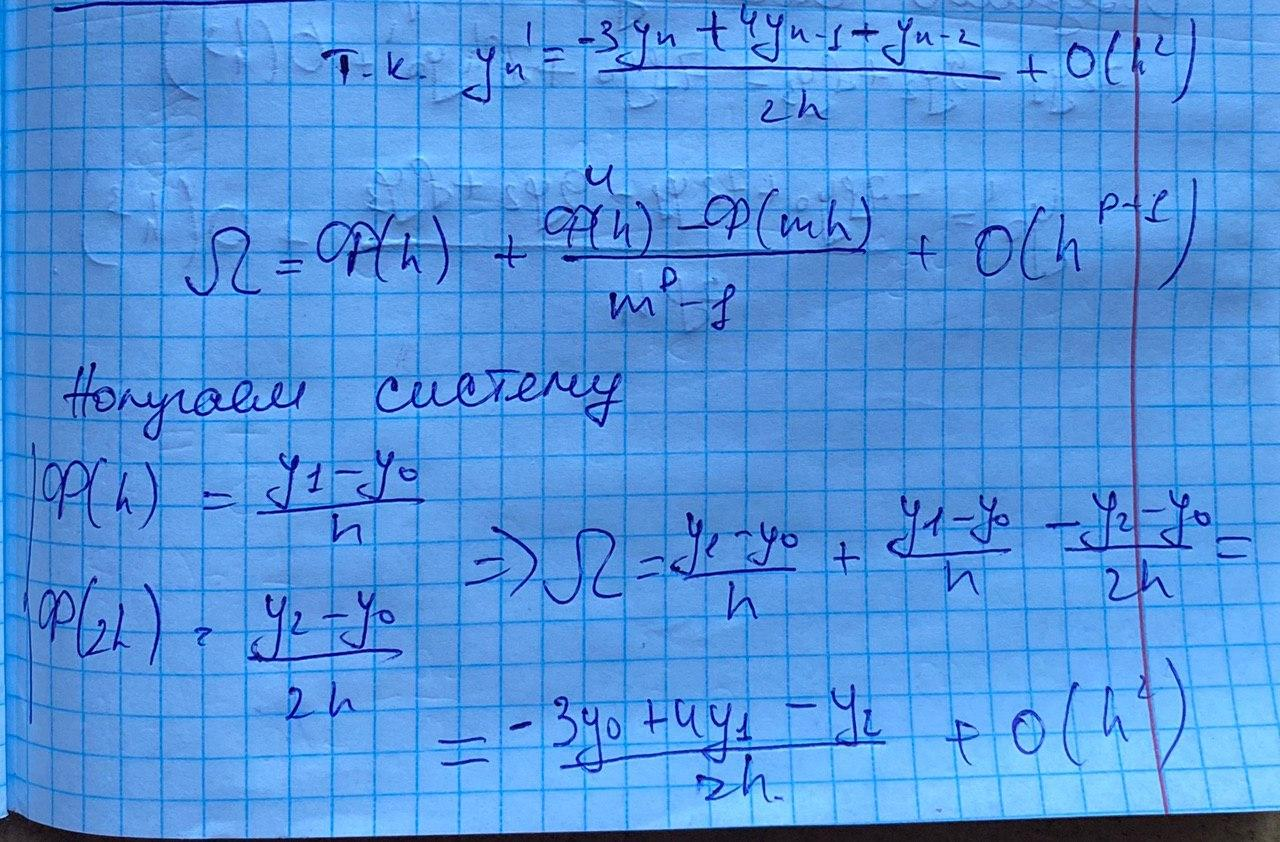 Т.к. yn' = (-3yn + 4yn-1 + yn-2)/(2h) + O(h²)
Ω = Φ(h) + (Φ(h) - Φ(mh))/(m^p - 1) + O(h^(p+1))
Получаем систему
Φ(h) = (y1 - y0)/h
Φ(2h) = (y2 - y0)/(2h)
=> Ω = (y1 - y0)/h + (y1 - y0)/h - (y2 - y0)/(2h) =
= (-3y0 + 4y1 - y2)/(2h) + O(h²)